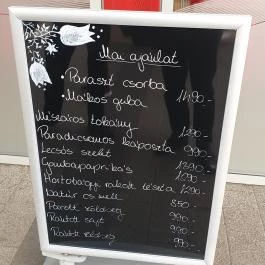 Mai ajánlat
• Paraszt csorba
• Mákos guba 1490.-
Mészáros tokány 1290.-
Paradicsomos káposzta 990.-
Lecsós szelet 1390.-
Gombapaprikás 1090.-
Hortobágyi rakott tészta 1290.-
Natúr cs.mell 850.-
Párolt zöldség 990.-
Rántott sajt 990.-
Rántott zöldség 990.-